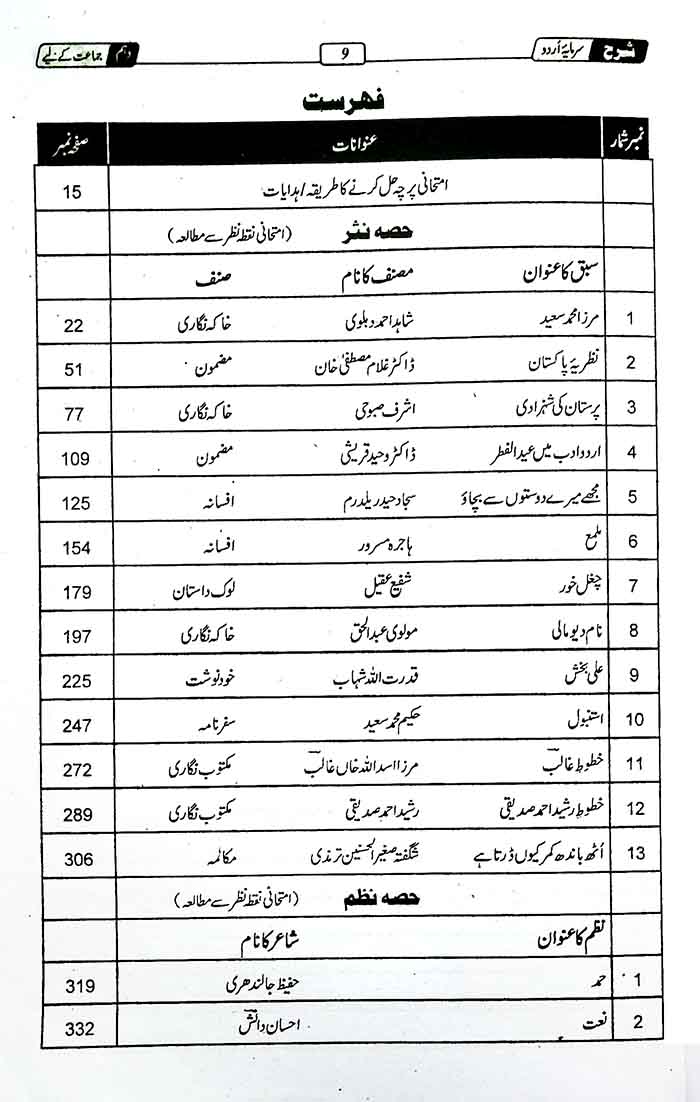 شرح سرمایۂ اُردو 9 دہم جماعت کے لیے
فہرست
نمبر شمار عنوانات صفحہ نمبر
امتحانی پرچہ حل کرنے کا طریقہ / ہدایات 15
حصہ نثر (امتحانی نقطۂ نظر سے مطالعہ)
سبق کا عنوان مصنف کا نام صنف
1 مرزا محمد سعید شاہد احمد دہلوی خاکہ نگاری 22
2 نظریۂ پاکستان ڈاکٹر غلام مصطفیٰ خان مضمون 51
3 پرستان کی شہزادی اشرف صبوحی خاکہ نگاری 77
4 اردو ادب میں عید الفطر ڈاکٹر وحید قریشی مضمون 109
5 مجھے میرے دوستوں سے بچاؤ سجاد حیدر یلدرم افسانہ 125
6 ملمع ہاجرہ مسرور افسانہ 154
7 چغل خور شفیع عقیل لوک داستان 179
8 نام دیو مالی مولوی عبدالحق خاکہ نگاری 197
9 علی بخش قدرت اللہ شہاب خودنوشت 225
10 استنبول حکیم محمد سعید سفرنامہ 247
11 خطوطِ غالبؔ مرزا اسد اللہ خاں غالبؔ مکتوب نگاری 272
12 خطوطِ رشید احمد صدیقی رشید احمد صدیقی مکتوب نگاری 289
13 اُٹھ باندھ کمر کیوں ڈرتا ہے شگفتہ صغیر الحسنین ترمذی مکالمہ 306
حصہ نظم (امتحانی نقطۂ نظر سے مطالعہ)
نظم کا عنوان شاعر کا نام
1 حمد حفیظ جالندھری 319
2 نعت احسان دانشؔ 332